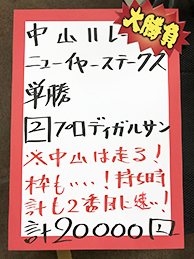 大勝負
中山11レース
ニューイヤーステークス
単勝
2 プロディガルサン
※中山は走る!
枠も…!持ち時
計も2番目に速い!
計20000円